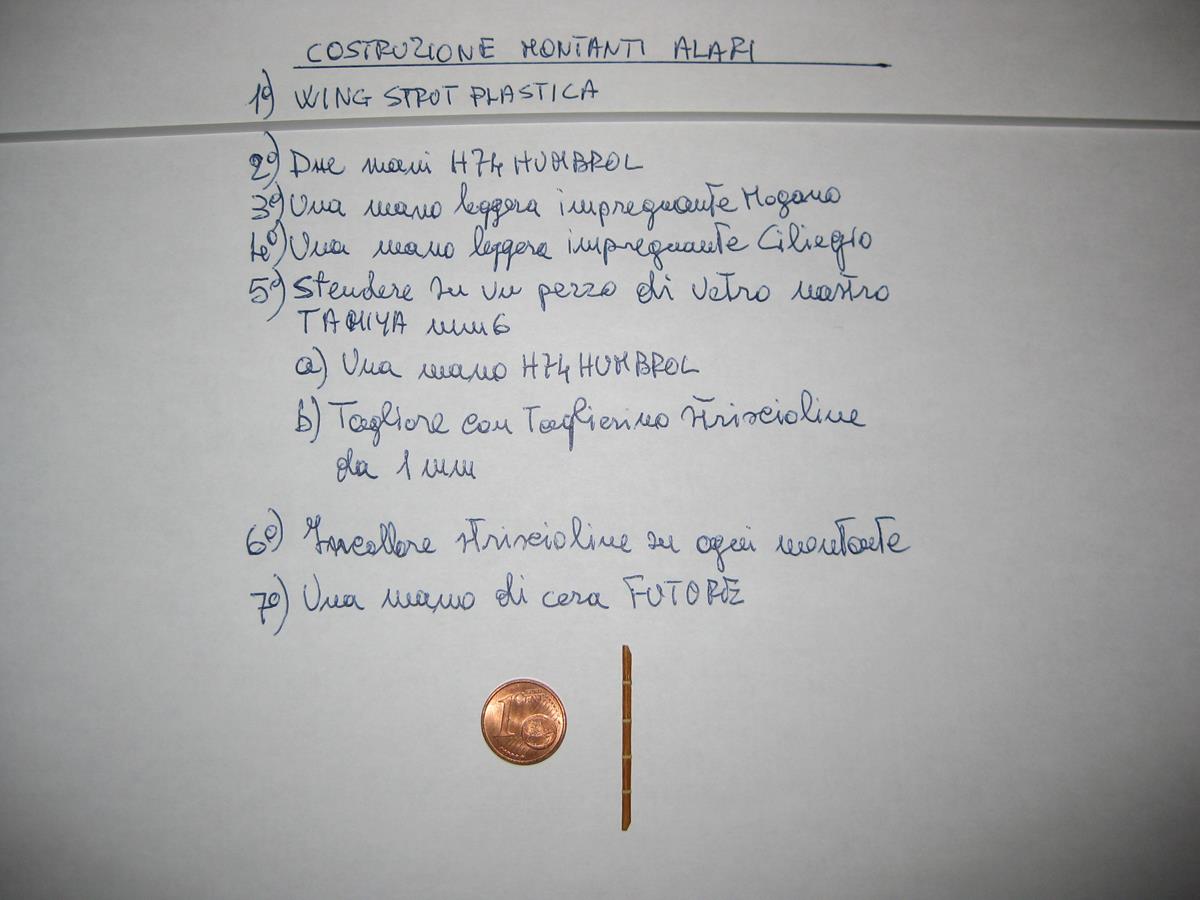 COSTRUZIONE MONTANTI ALARI
1º) WING STRUT PLASTICA
2º) Due mani H74 HUMBROL
3º) Una mano leggera impregnante Mogano
4º) Una mano leggera impregnante Ciliegio
5º) Stendere su un pezzo di vetro nastro
TAMIYA mm6
a) Una mano H74 HUMBROL
b) Tagliare con Taglierino striscioline
da 1 mm
6º) Incollare striscioline su ogni montante
7º) Una mano di cera FUTURE
1 CENT